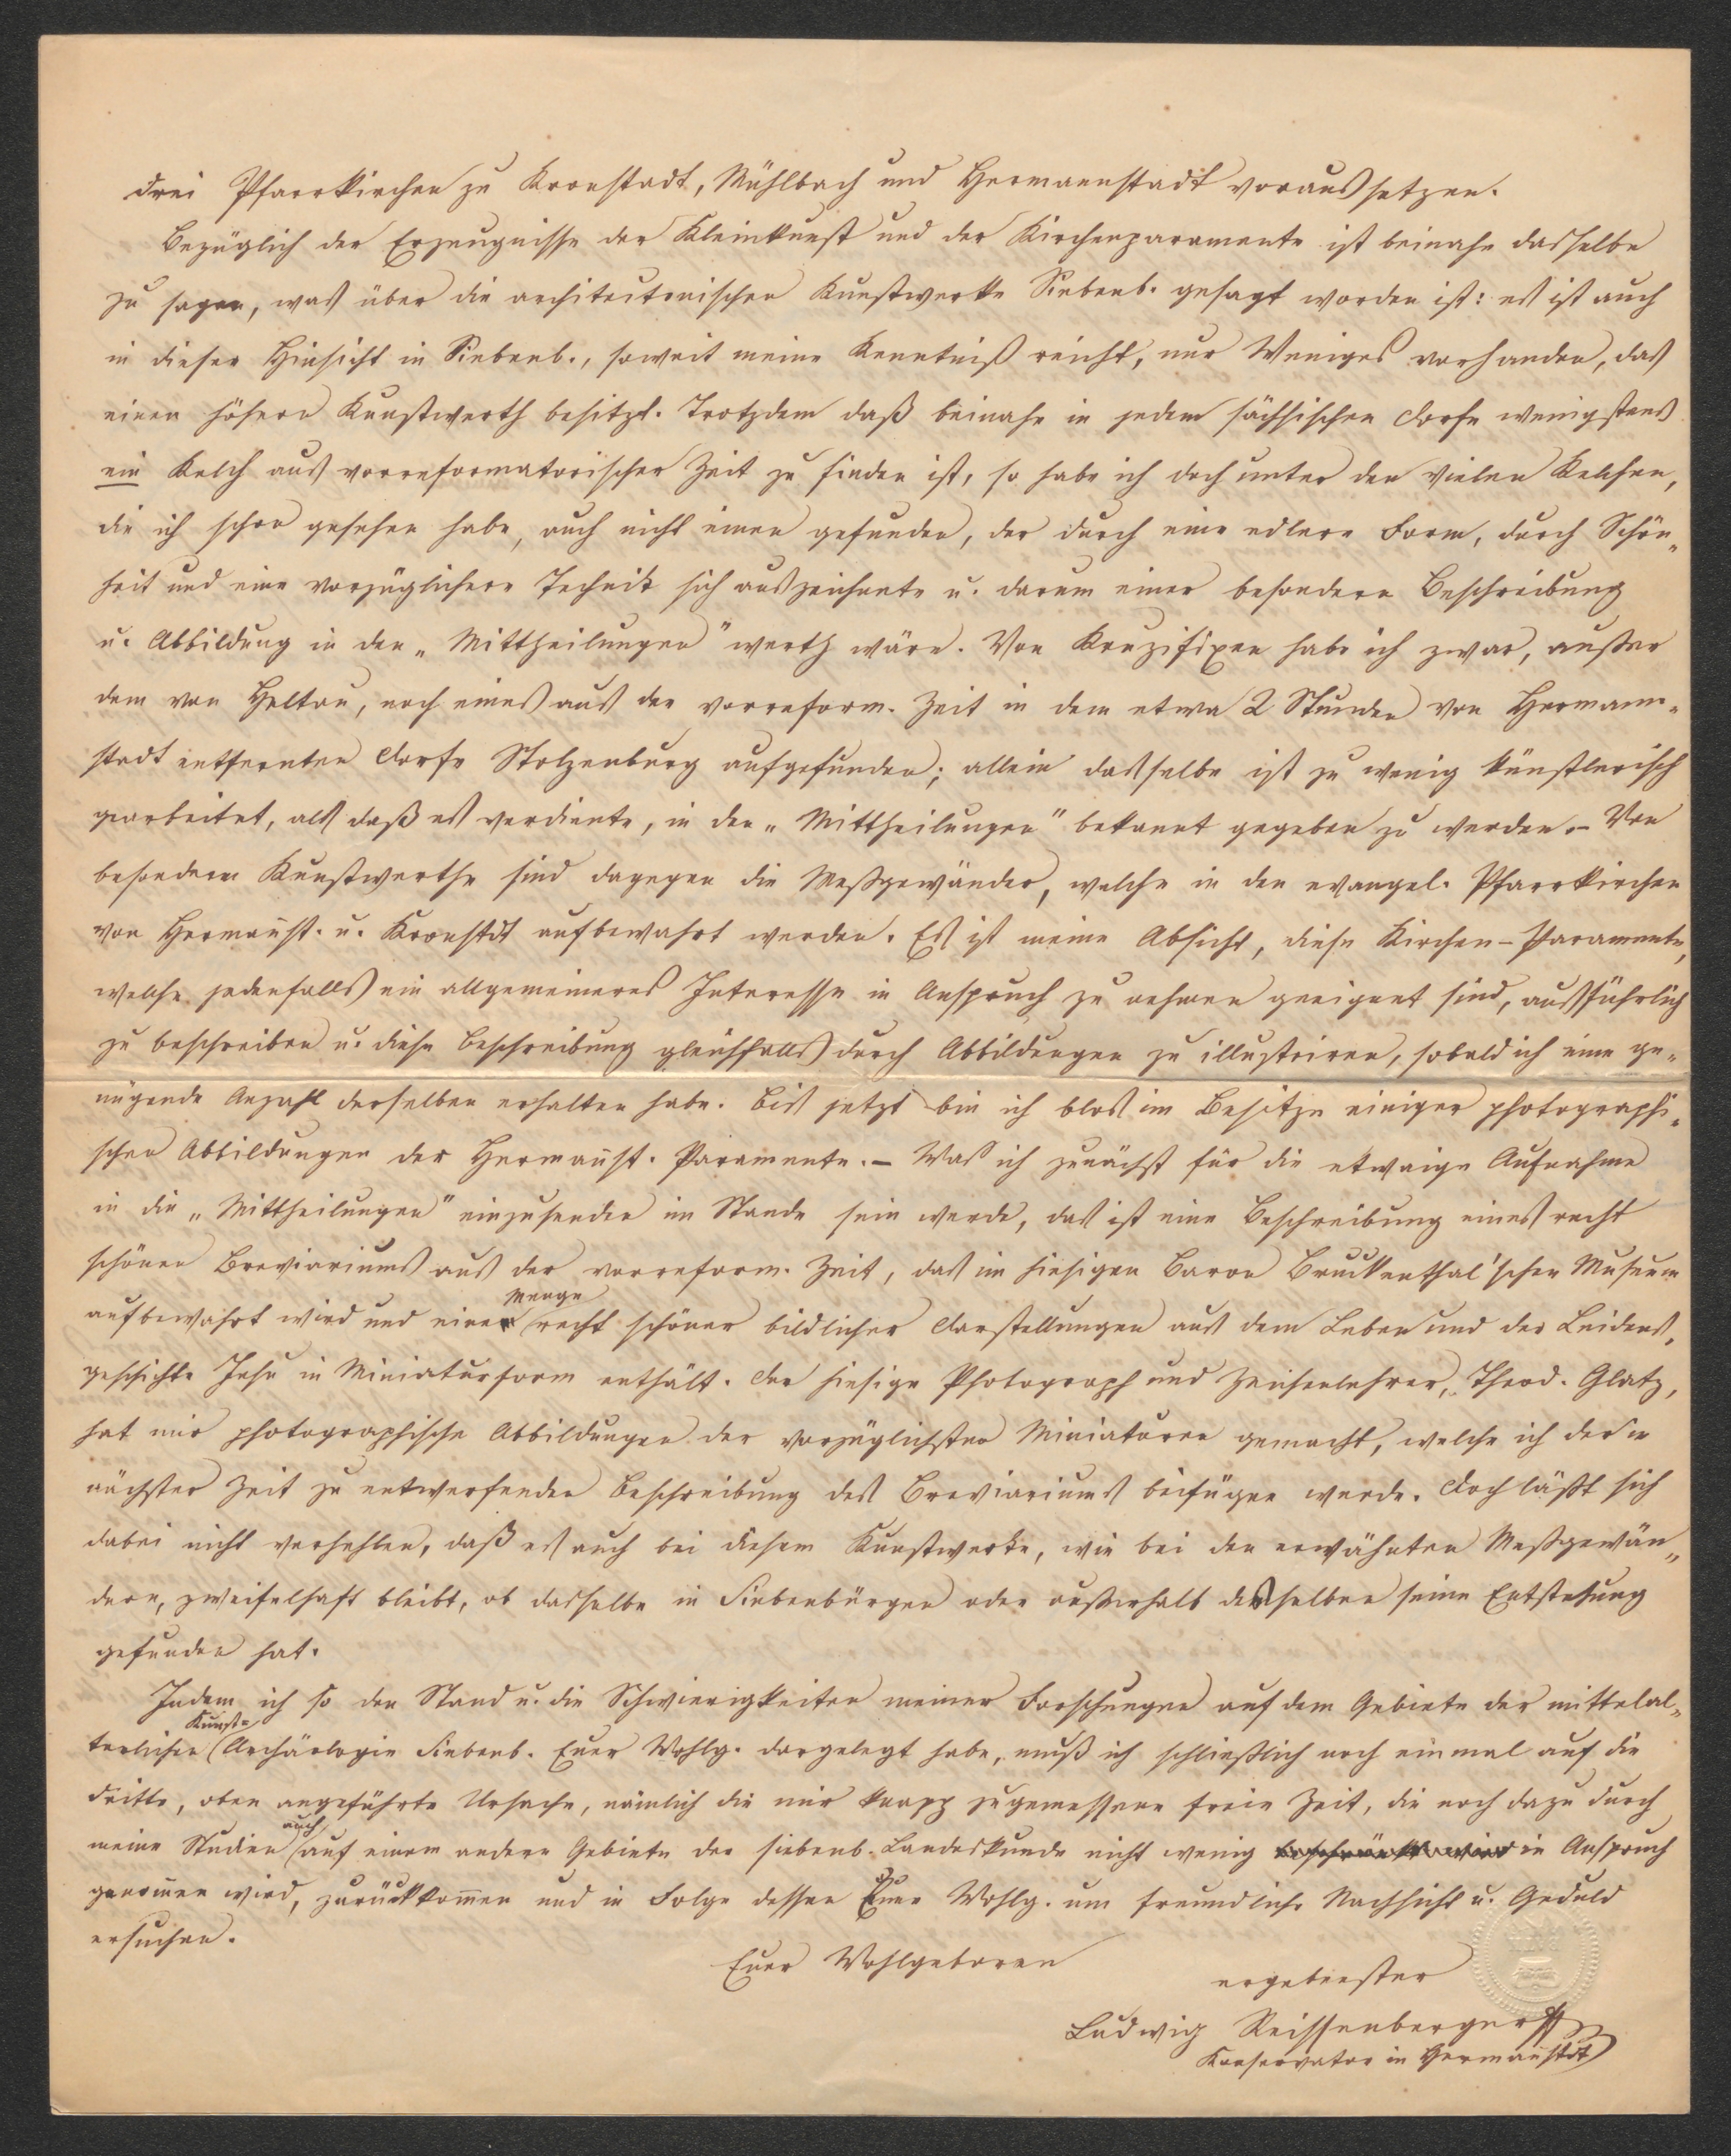 drei Pfarrkirchen zu Kronstadt, Mühlbach und Hermannstadt voraussetzen.
Bezüglich der Erzeugnisse der Kleinkunst und der Kirchenparamente ist beinahe dasselbe
zu sagen, was über die architectonischen Kunstwerke Siebenb. gesagt worden ist: es ist auch
in dieser Hinsicht in Siebenb., soweit meine Kenntniß reicht, nur Weniges vorhanden, das
einen höhern Kunstwerth besitzt. Trotzdem daß beinahe in jedem sächsischen Dorfe wenigstens
ein Kelch aus vorreformatorischer Zeit zu finden ist, so habe ich doch unter den vielen Kelchen,
die ich schon gesehen habe, auch nicht einen gefunden, der durch eine edlere Form, durch Schön-
heit und eine vorzüglichere Technik sich auszeichnete u. darum einer besondern Beschreibung
u. Abbildung in den „Mittheilungen" werth wäre. Von Kruzifixen habe ich zwar, außer
dem von Heltau, noch eines aus der vorreform. Zeit in dem etwa 2 Stunden von Hermann-
stadt entfernten Dorfe Stolzenburg aufgefunden; allein dasselbe ist zu wenig künstlerisch
gearbeitet, als daß es verdiente, in den „Mittheilungen" bekannt gegeben zu werden. – Von
besonderm Kunstwerthe sind dagegen die Meßgewänder, welche in den evangel. Pfarrkirchen
von Hermanst. u. Kronstdt aufbewahrt werden. Es ist meine Absicht, diese Kirchen-Paramente,
welche jedenfalls ein allgemeineres Interesse in Anspruch zu nehmen geeignet sind, ausführlich
zu beschreiben u. diese Beschreibung gleichfalls durch Abbildungen zu illustriren, sobald ich eine ge-
nügende Anzahl derselben erhalten habe. Bis jetzt bin ich blos im Besitze einiger photographi-
schen Abbildungen der Hermanst. Paramente. – Was ich zunächst für die etwaige Aufnahme
in die „Mittheilungen" einzusenden im Stande sein werde, das ist eine Beschreibung eines recht
schönen Breviariums aus der vorreform. Zeit, das im hiesigen Baron Bruckenthal'schen Museum
aufbewahrt wird und eine Menge recht schöner bildlicher Darstellungen aus dem Leben und der Leidens-
geschichte Jesu in Miniaturform enthält. Der hiesige Photograph und Zeichenlehrer, Theod. Glatz,
hat mir photographische Abbildungen der vorzüglichsten Miniaturen gemacht, welche ich der in
nächster Zeit zu entwerfenden Beschreibung des Breviariums beifügen werde. Doch läßt sich
dabei nicht verhehlen, daß es auch bei diesem Kunstwerke, wie bei den erwähnten Meßgewän-
dern, zweifelhaft bleibt, ob dasselbe in Siebenbürgen oder außerhalb desselben seine Entstehung
gefunden hat.
Indem ich so den Stand u. die Schwierigkeiten meiner Forschungen auf dem Gebiete der mittelal-
terlichen Kunst-Archäologie Siebenb. Euer Wohlg. dargelegt habe, muß ich schließlich noch einmal auf die
dritte, oben angeführte Ursache, nämlich die mir knapp zugemessene freie Zeit, die noch dazu durch
meine Studien auch auf einem andern Gebiete der siebenb. Landeskunde nicht wenig beschränkt wird in Anspruch
genommen wird, zurückkommen und in Folge dessen Euer Wohlg. um freundliche Nachsicht u. Geduld
ersuchen.
Euer Wohlgeboren
ergebenster
Ludwig Reissenberger
Konservator in Hermanstdt